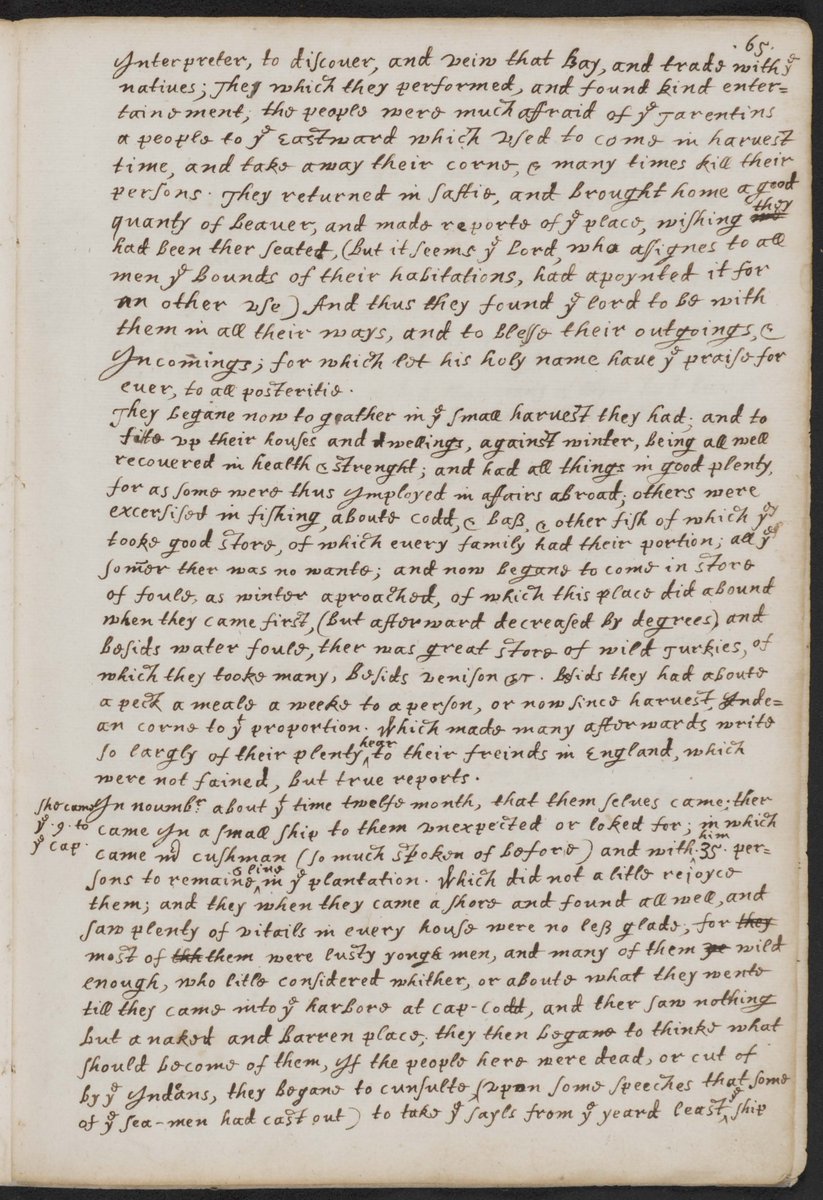 .65.
Interpreter, to discover, and veiw that Bay, and trade with yͤ
natives; They which they performed, and found kind enter=
tainement, the people were much affraid of yͤ Tarentins
a people to yͤ Eastward which vsed to come in harvest
time, and take away their corne, & many times kill their
persons. They returned in saftie, and brought home a good
quanty of beaver, and made reporte of yͤ place, wishing they
had been ther seated, (but it seems yͤ Lord, who assignes to all
men yͤ bounds of their habitations, had apoynted it for
an other vse) And thus they found yͤ lord to be with
them in all their ways, and to blesse their outgoings, &
Incom̅ings; for which let his holy name have yͤ praise for
ever, to all posteritie.
They begane now to gather in yͤ small harvest they had; and to
fite vp their houses and dwellings, against winter, being all well
recovered in health & strenght; and had all things in good plenty,
for as some were thus Imployed in affairs abroad; others were
excersised in fishing, aboute codd, & bass, & other fish of which yͤʸ
tooke good store, of which every family had their portion; all yͤ
som̅er ther was no wante; and now begane to come in store
of foule, as winter aproached, of which this place did abound
when they came first, (but afterward decreased by degrees) and
besids water foule, ther was great store of wild Turkies, of
which they tooke many, besids venison &c. Bsids they had aboute
a peck a meale a weeke to a person, or now since harvest, Inde=
an corne to yͭ proportion. Which made many afterwards write
so largly of their plenty hear to their freinds in England, which
were not fained, but true reports.
In noumbͬ. about yͭ time twelfe month, that them selves came; ther
she came yͤ .9. to yͤ cap.
came In a small ship to them vnexpected or loked for; in which
came mͬ cushman (so much spoken of before) and with him .35. per=
sons to remaine & live in yͤ plantation. Which did not a litle rejoyce
them; and they when they came a shore and found all well, and
saw plenty of vitails in every house were no less glade, for they
most of them were lusty yonge men, and many of them wild
enough, who litle considered whither, or aboute what they wente
till they came into yͤ harbore at cap-codd, and ther saw nothing
but a naked and barren place; they then begane to thinke what
should become of them, If the people here were dead, or cut of
by yͤ Indans, they begane to cunsulte (vpon some speeches that some
of yͤ sea-men had cast out) to take yͤ sayls from yͤ yeard least yͤ ship